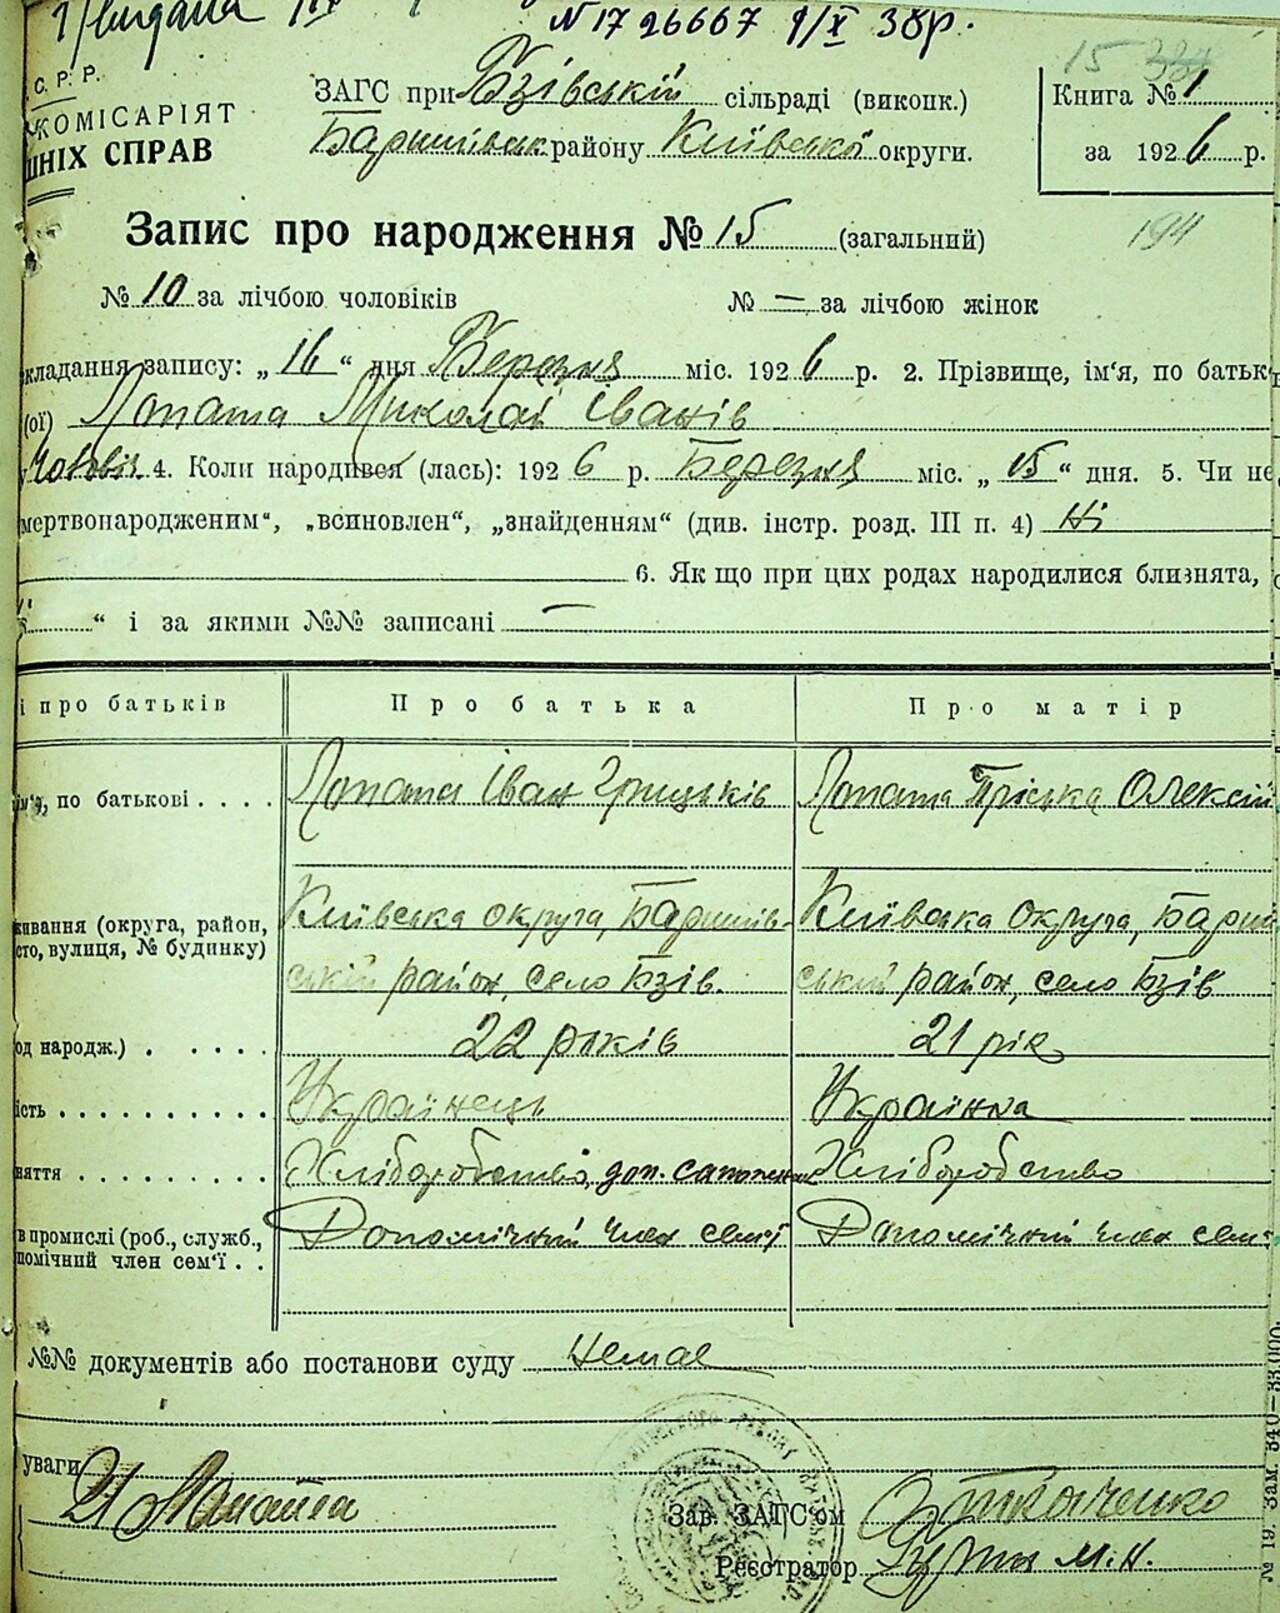 № 1726667 9/X 38р.
15
С. Р. Р.
КОМІСАРІЯТ
ШНІХ СПРАВ
ЗАГС при Бзівській сільраді (виконк.)
Баришівськ району Київської округи.
Книга № 1
за 1926 р.
194
Запис про народження № 15 (загальний)
№ 10 за лічбою чоловіків № — за лічбою жінок
кладання запису: „ 16 “ дня Березня міс. 1926 р. 2. Прізвище, ім‘я, по батьк
(ої) Лопата Миколай Іванів
у Чоловіч. 4. Коли народився (лась): 1926 р. Березня міс. „ 15 “ дня. 5. Чи не
мертвонародженим“, „всиновлен“, „знайденням“ (див. інстр. розд. III п. 4) Ні
6. Як що при цих родах народилися близнята,
“ і за якими №№ записані —
і про батьків Про батька Про матір
ім‘я, по батькові . . . . Лопата Іван Грицьків Лопата Пріська Олексій
живання (округа, район, Київська округа, Баришів- Київська округа, Бариш
сто, вулиця, № будинку) ський район, село Бзів. ський район, село Бзів
од народж.) . . . . . 22 років 21 рік
ість . . . . . . . . . . Українець Українка
няття . . . . . . . . . Хліборобство, доп. сапожник Хліборобство
в промислі (роб., служб., Допомічний член семʼї Допомічний член семʼ
помічний член сем‘ї . .
№№ документів або постанови суду Немає
уваги
И Лопата
Зав. ЗАГС‘ом Ткаченко
Реєстратор М.Н.
№ 19. Зам. 340—33.000.